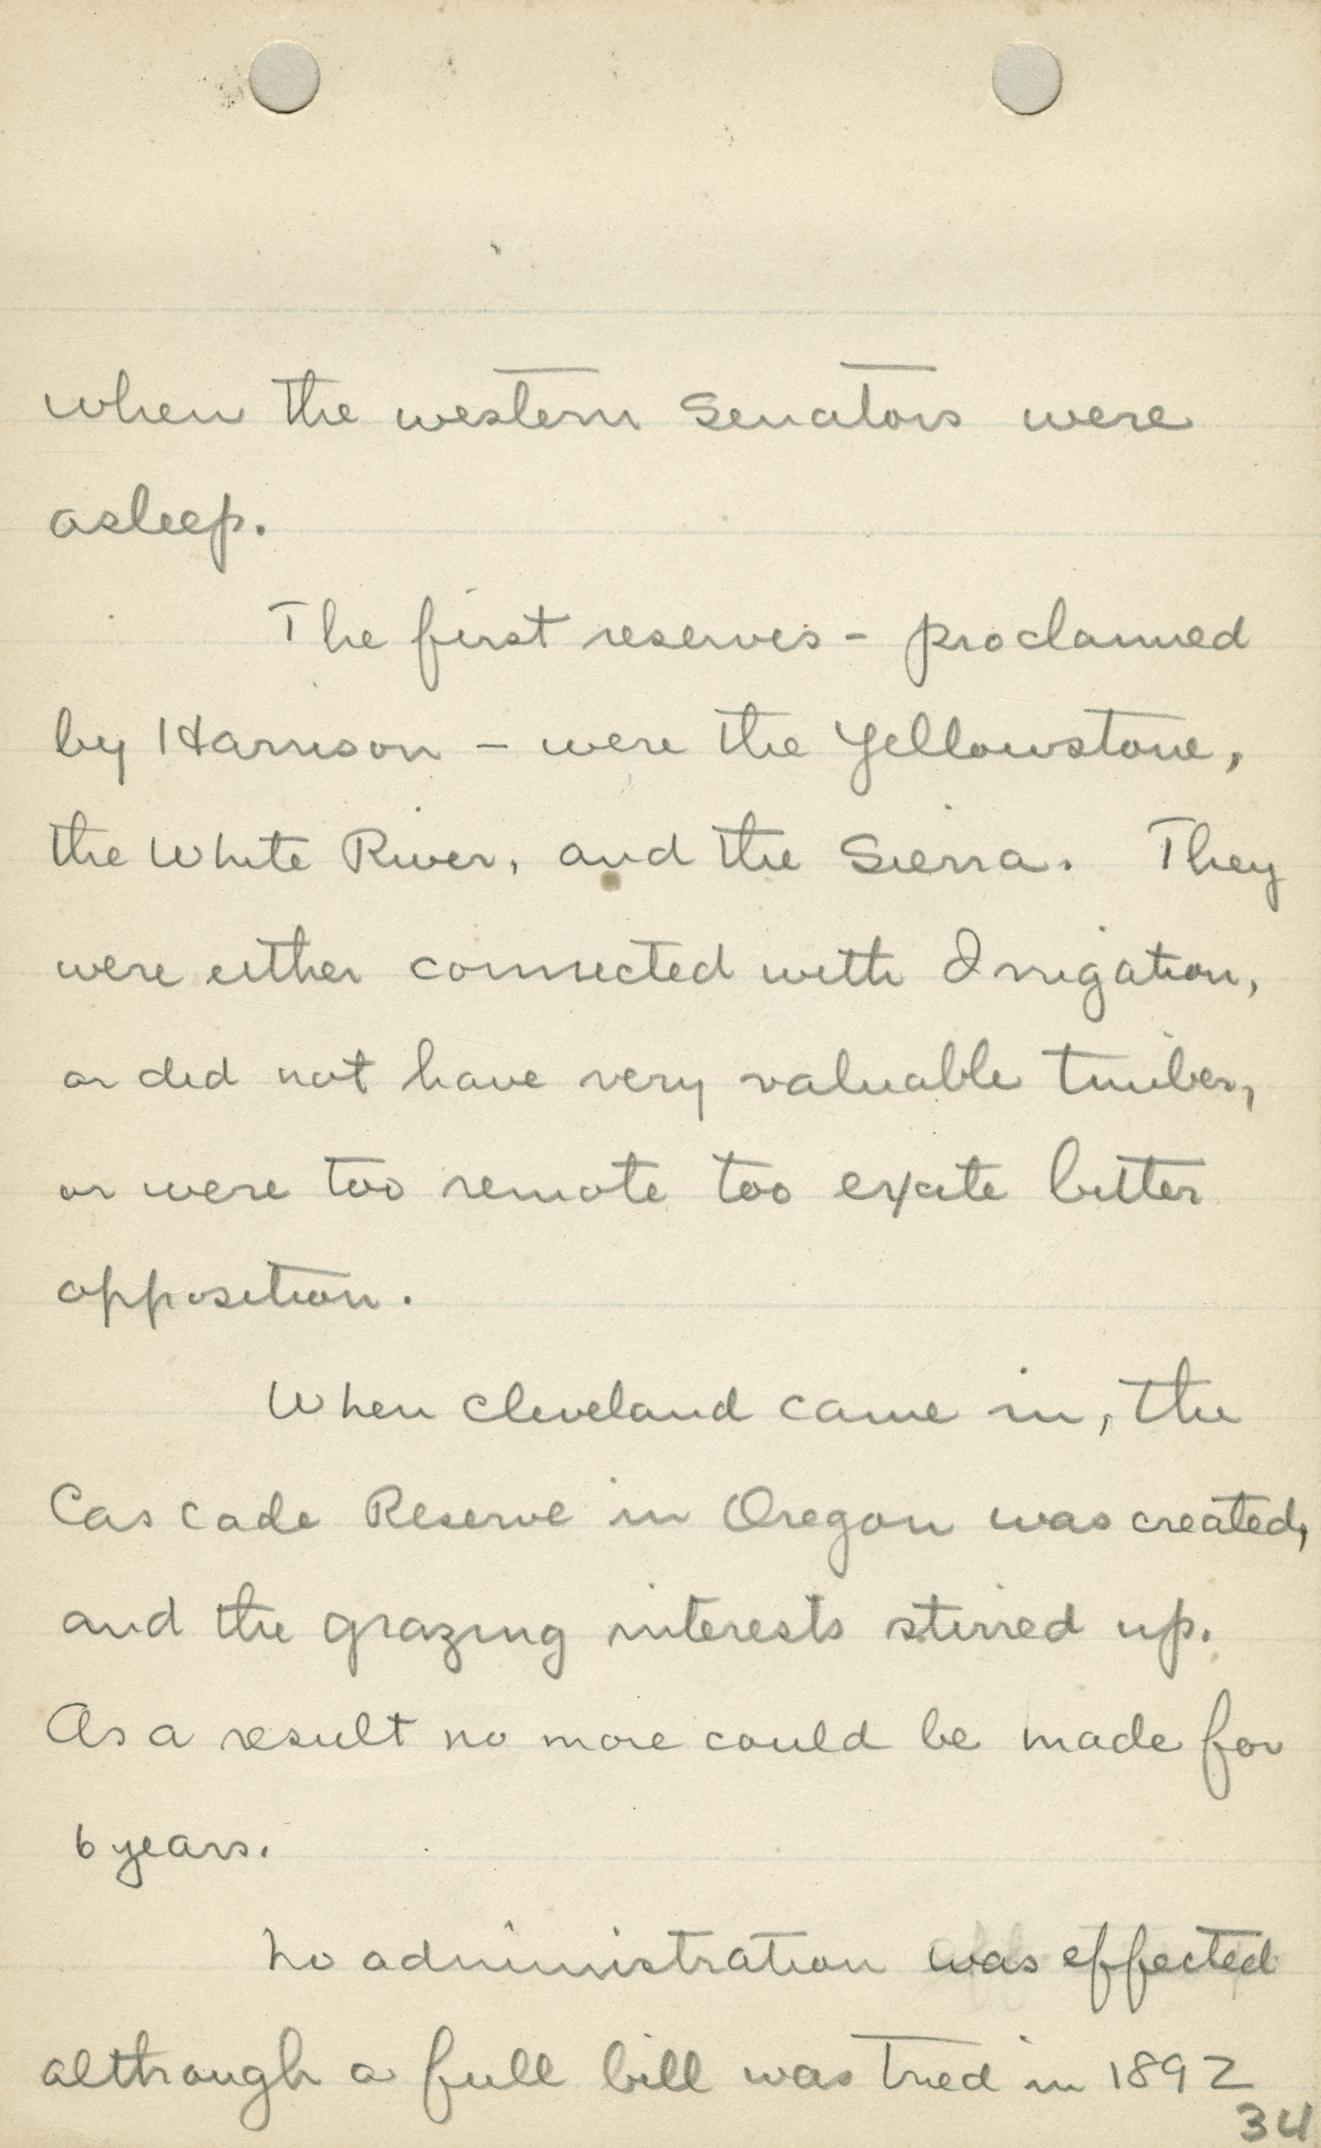 when the western Senators were
asleep.
The first reserves - proclaimed
by Harrison - were the Yellowstone,
the White River, and the Sierra. They
were either connected with Irrigation,
or did not have very valuable timber,
or were too remote too excite bitter
opposition.
When Cleveland came in, the
Cascade Reserve in Oregon was created,
and the grazing interests stirred up.
As a result no more could be made for
6 years.
No administration was effected
although a full bill was tried in 1892
34